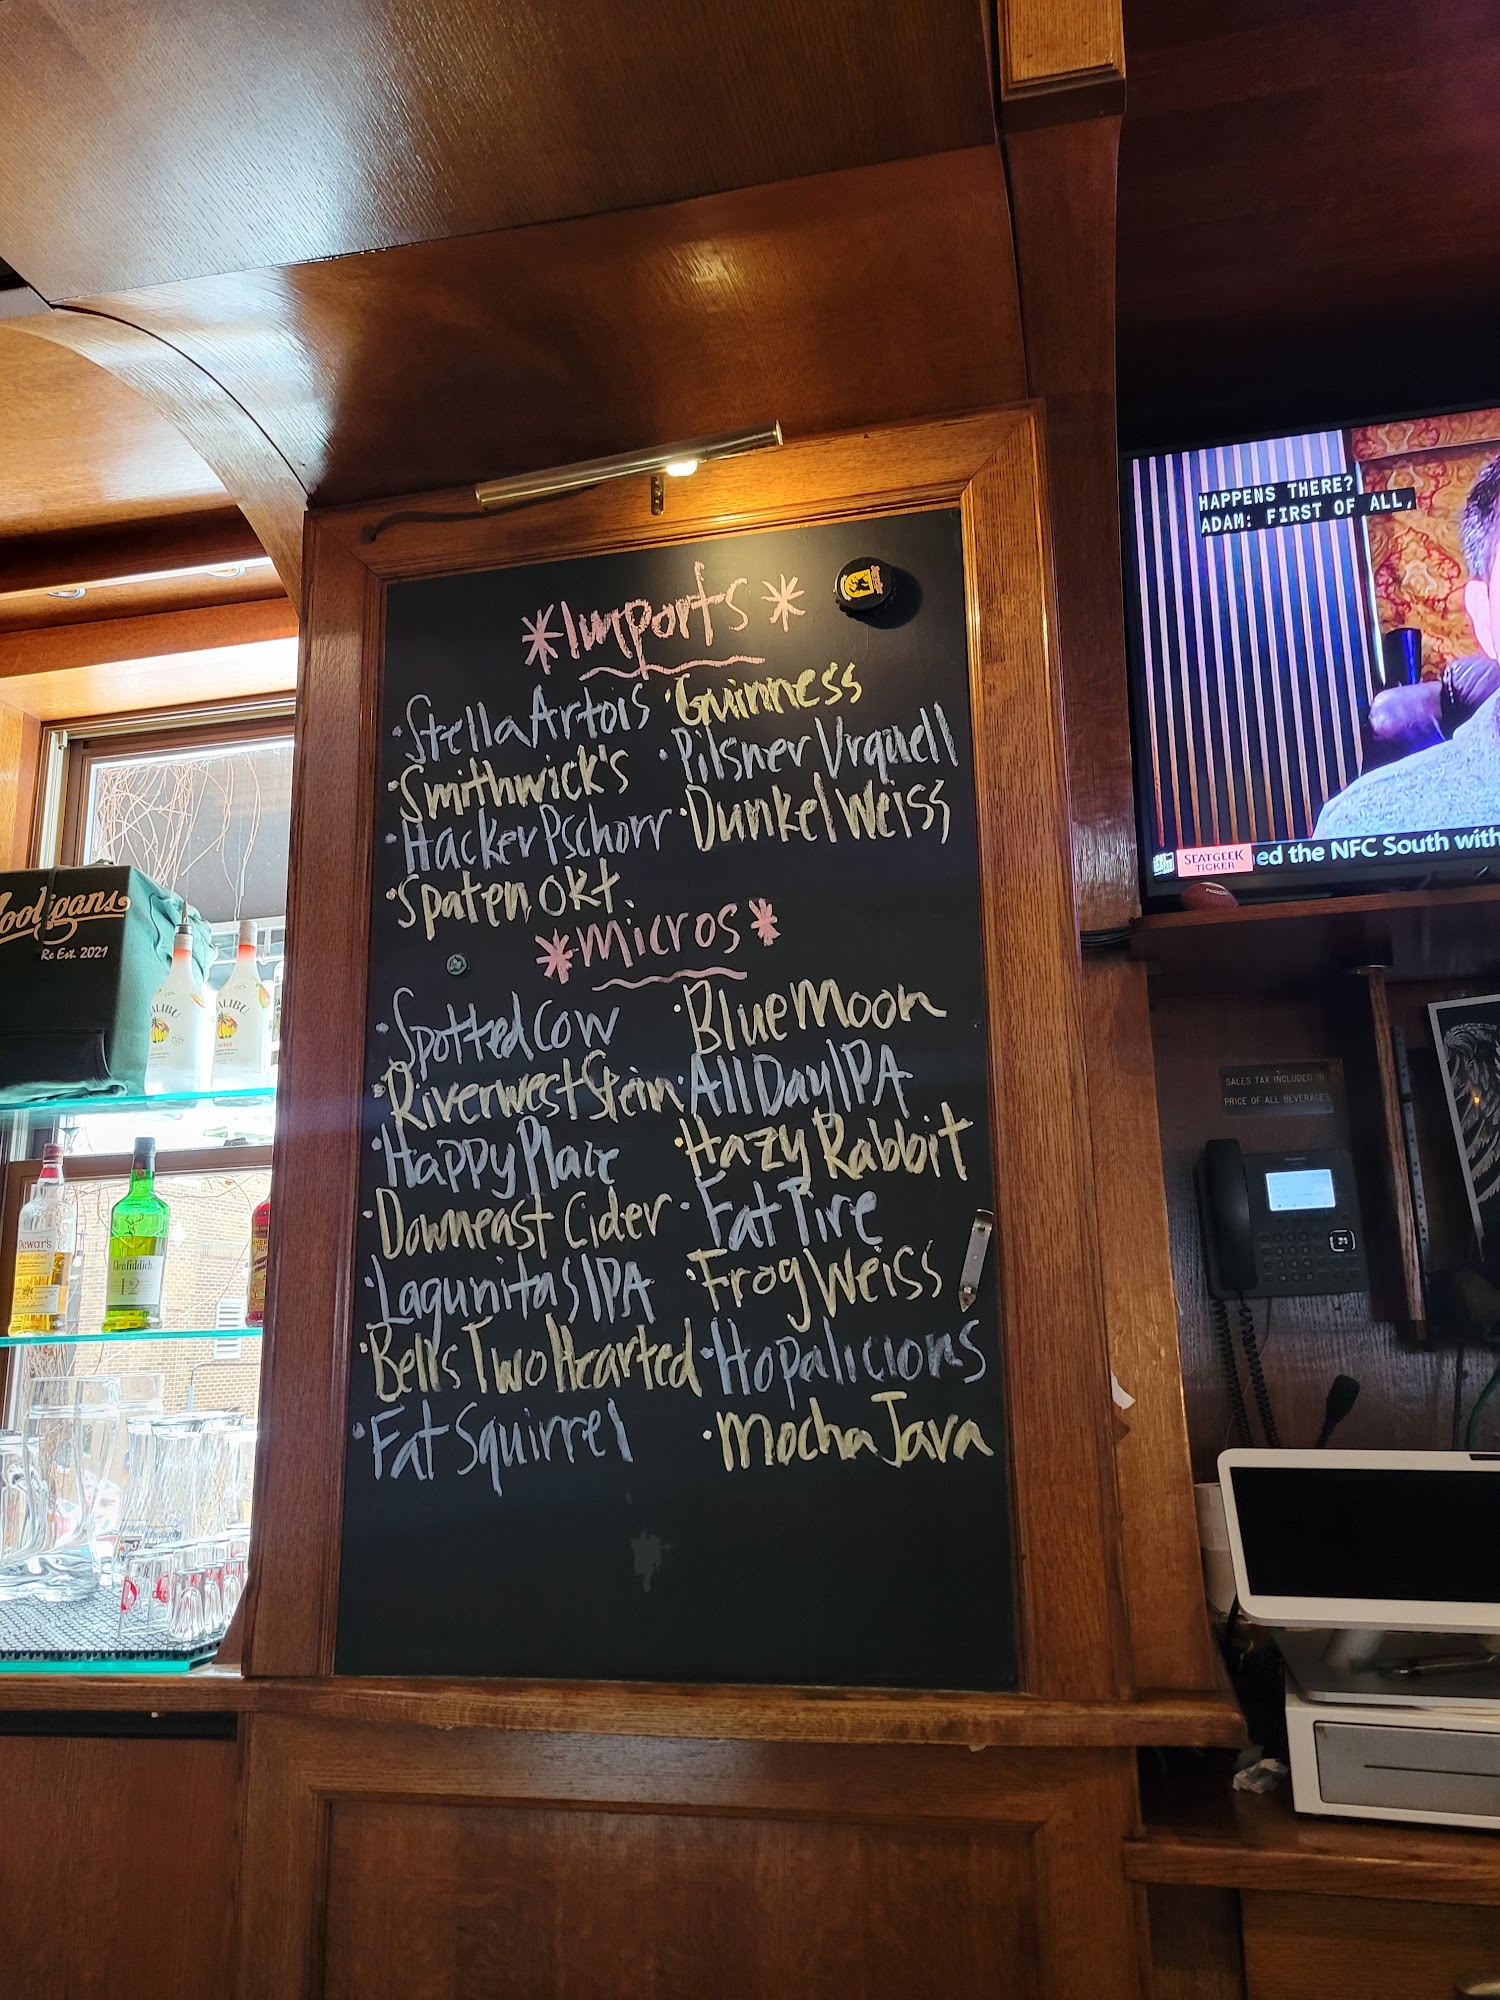 *Imports*
·Stella Artois ·Guinness
·Smithwick's ·Pilsner Urquell
·Hacker Pschorr ·Dunkel Weiss
·Spaten Okt.
*Micros*
·Spotted Cow ·Blue Moon
·Riverwest Stein ·All Day IPA
·Happy Place ·Hazy Rabbit
·Downeast Cider ·Fat Tire
·Lagunitas IPA ·Frog Weiss
·Bells Two Hearted ·Hopalicious
·Fat Squirrel ·Mocha Java
HAPPENS THERE?
ADAM: FIRST OF ALL,
SEATGEEK
TICKER
ed the NFC South with
SALES TAX INCLUDED IN
PRICE OF ALL BEVERAGES
Panasonic
ooligans
Re Est. 2021
MALIBU
MALIBU
Dewar's
Glenfiddich
12